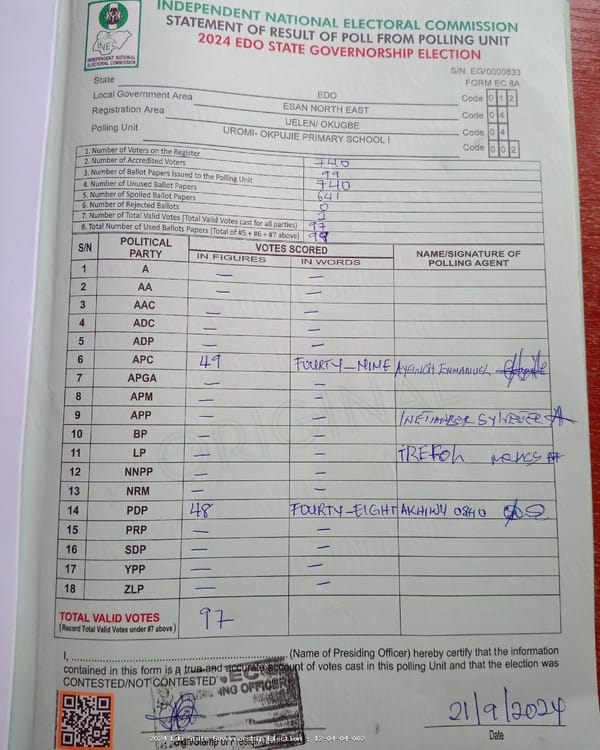 INDEPENDENT NATIONAL ELECTORAL COMMISSION
STATEMENT OF RESULT OF POLL FROM POLLING UNIT
2024 EDO STATE GOVERNORSHIP ELECTION
INEC
INDEPENDENT NATIONAL ELECTORAL COMMISSION
S/N: EG/0000833
FORM EC 8A
State EDO Code 0 1 2
Local Government Area ESAN NORTH EAST Code 0 4
Registration Area UELEN/ OKUGBE Code 0 4
Polling Unit UROMI- OKPUJIE PRIMARY SCHOOL I Code 0 0 2
1. Number of Voters on the Register 740
2. Number of Accredited Voters 99
3. Number of Ballot Papers Issued to the Polling Unit 740
4. Number of Unused Ballot Papers 641
5. Number of Spoiled Ballot Papers 0
6. Number of Rejected Ballots 2
7. Number of Total Valid Votes (Total Valid Votes cast for all parties) 97
8. Total Number of Used Ballots Papers (Total of #5 + #6 + #7 above) 99
S/N POLITICAL PARTY VOTES SCORED NAME/SIGNATURE OF POLLING AGENT
IN FIGURES IN WORDS
1 A — —
2 AA — —
3 AAC — —
4 ADC — —
5 ADP — —
6 APC 49 FOURTY-NINE EMMANUEL
7 APGA — —
8 APM — —
9 APP — —
10 BP — —
11 LP — —
12 NNPP — —
13 NRM — —
14 PDP 48 FOURTY-EIGHT
15 PRP — —
16 SDP — —
17 YPP — —
18 ZLP — —
TOTAL VALID VOTES 97
(Record Total Valid Votes under #7 above)
ORIGINAL
I, ........................ (Name of Presiding Officer) hereby certify that the information
contained in this form is a true and accurate account of votes cast in this polling Unit and that the election was
CONTESTED/NOT CONTESTED
21/9/2024
Date
2024 Edo State Governorship Election - 12-04-04-002